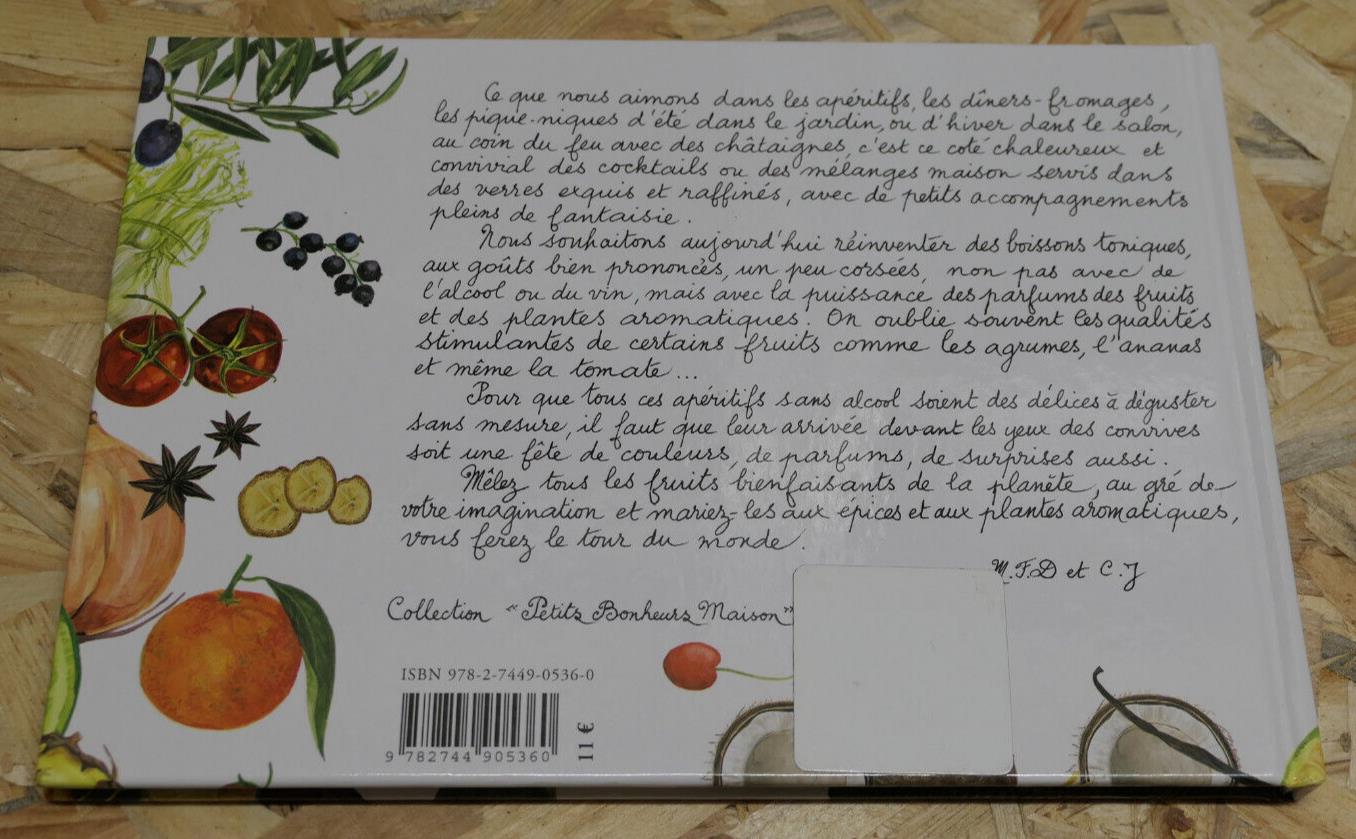 Ce que nous aimons dans les apéritifs, les dîners-fromages,
les pique-niques d'été dans le jardin, ou d'hiver dans le salon,
au coin du feu avec des châtaignes, c'est ce coté chaleureux et
convivial des cocktails ou des mélanges maison servis dans
des verres exquis et raffinés, avec de petits accompagnements
pleins de fantaisie.
Nous souhaitons aujourd'hui réinventer des boissons toniques,
aux goûts bien prononcés, un peu corsées, non pas avec de
l'alcool ou du vin, mais avec la puissance des parfums des fruits
et des plantes aromatiques. On oublie souvent les qualités
stimulantes de certains fruits comme les agrumes, l'ananas
et même la tomate...
Pour que tous ces apéritifs sans alcool soient des délices à déguster
sans mesure, il faut que leur arrivée devant les yeux des convives
soit une fête de couleurs, de parfums, de surprises aussi.
Mêlez tous les fruits bienfaisants de la planète, au gré de
votre imagination et mariez-les aux épices et aux plantes aromatiques,
vous ferez le tour du monde.
M.F.D et C.J
Collection "Petits Bonheurs Maison"
ISBN 978-2-7449-0536-0
9 782744 905360
11 €